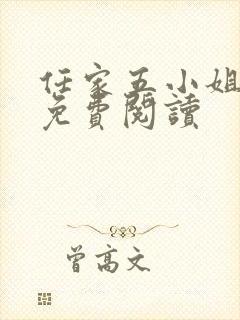 任家五小姐
免費閱讀
曾高文